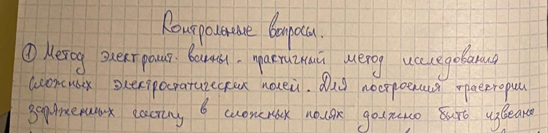 Контрольные вопросы.
① Метод электролит. ванны - практичный метод исследования
сложных электростатических полей. Для построения траектории
заряженных частиц в сложных полях должно быть известно